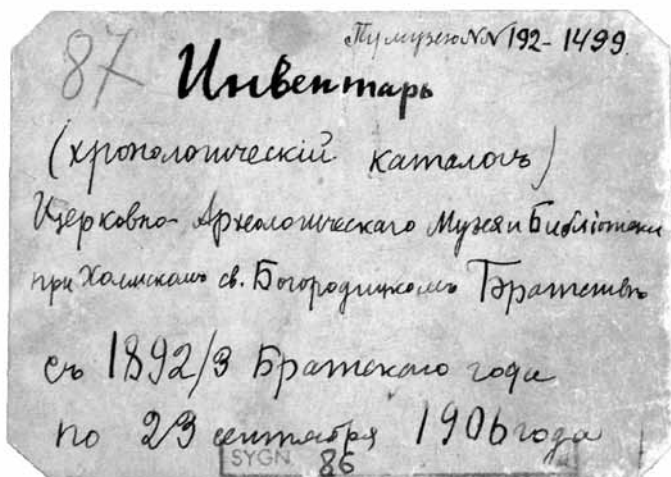 87 По музею NN 192-1499.
Инвентарь
(хронологическій каталогъ)
Церковно-Археологическаго Музея и Библіотеки
при Холмскомъ св. Богородицкомъ Братствѣ
съ 1892/3 Братскаго года
по 23 сентября 1906 года
SYGN. 86